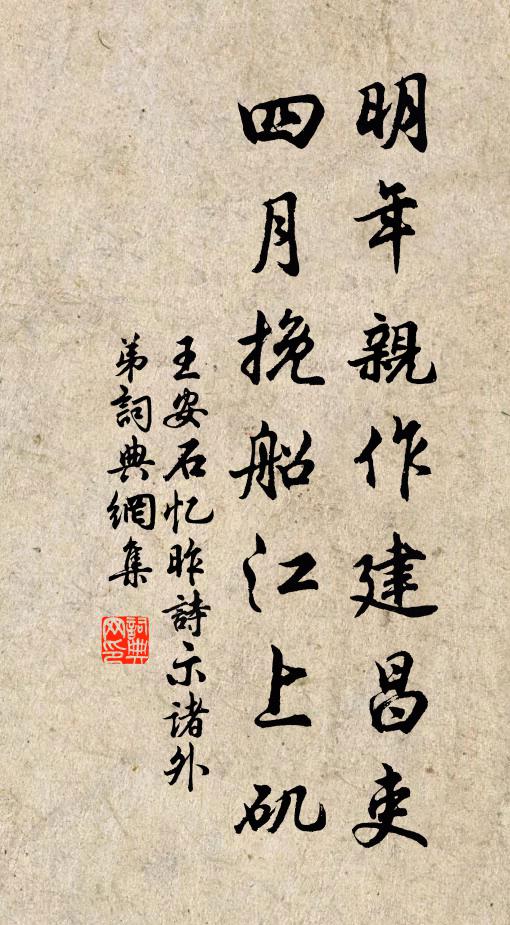 明年親作建昌吏
四月挽船江上矶
王安石忆昨詩示诸外
弟詞典網集
詞典網印